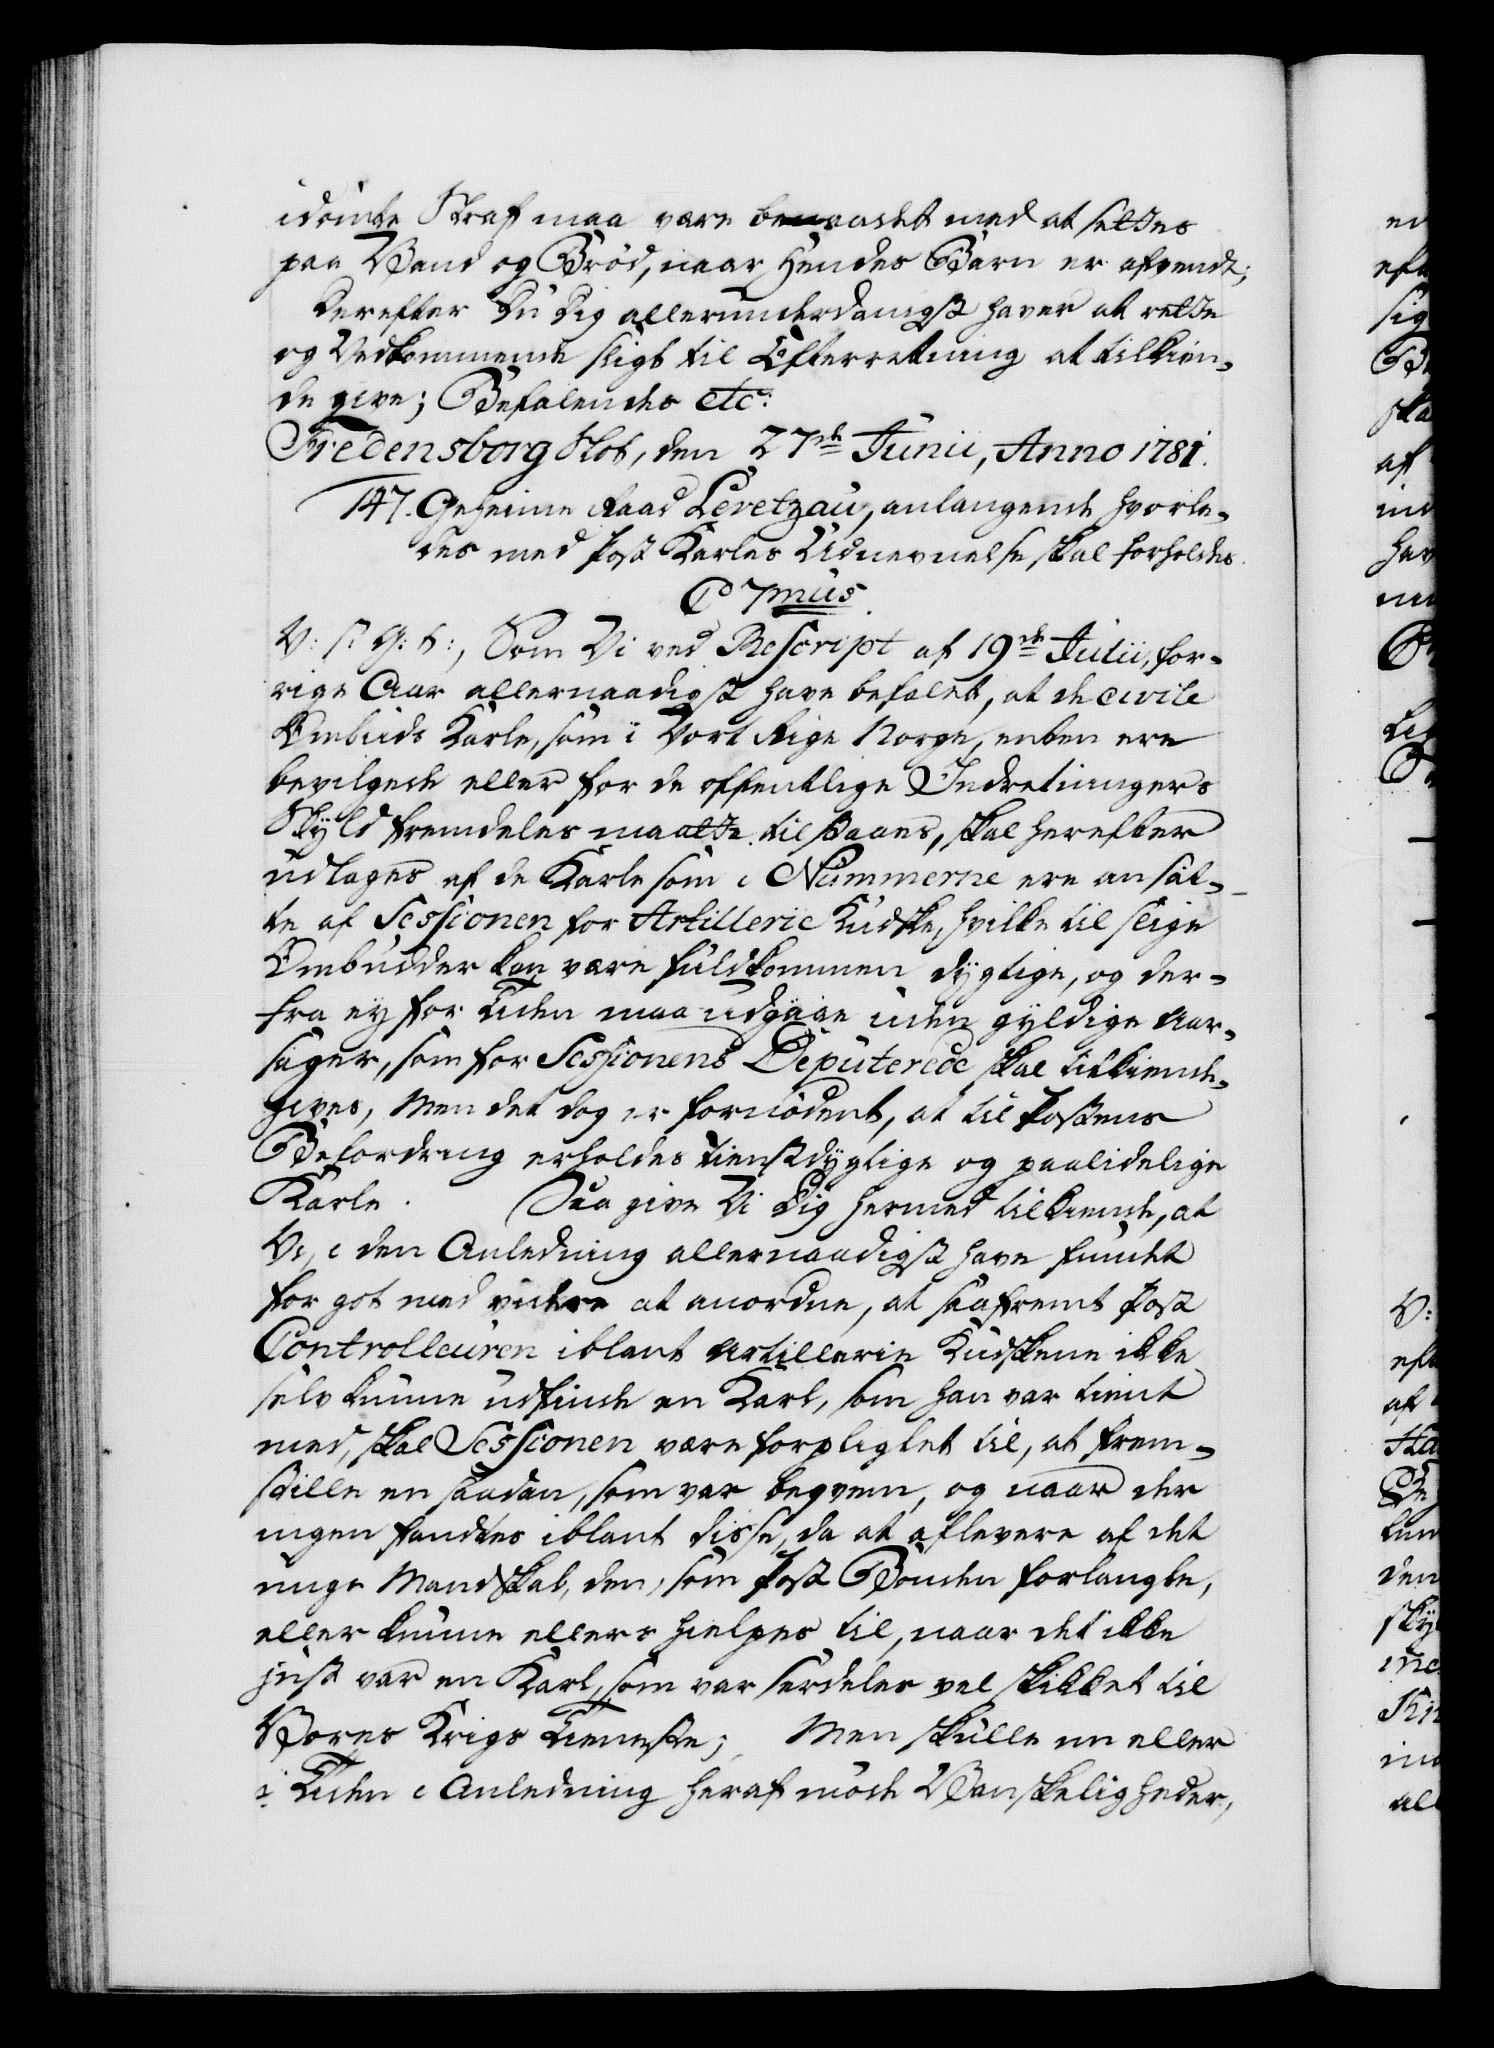 idömte Straf maa være benaadet med at settes
paa Vand og Bröd, naar Hendes Barn er afvendt;
Derefter Du Dig allerunderdanigst haver at rette
og Vedkommende sligt til Efterretning at tilkien-
de give; Befalendes etc:
Fredensborg Slot, den 27de Junii, Anno 1781.
147. Geheime Raad Levetzau, anlangende hvorle-
des med Post Karles Udnevnelse skal forholdes.
C 7mus.
V: s: G: t:, Som Vi ved Rescript af 19de Julii, for-
rige Aar allernaadigst have befalet, at de civile
Ombuds Karle, som i Vort Rige Norge, enten ere
bevilgede eller for de offentlige Indretningers
Skyld fremdeles maatte tilstaaes, skal herefter
udtages af de Karle som i Nummerne ere ansat-
te af Sessionen for Artillerie Kudske, hvilke til slige
Ombudder kan være fuldkommen dygtige, og der-
fra ey for Tiden maa udgaae uden gyldige Aar-
sager, som for Sessionens Deputerede skal tilkiende-
gives, Men det dog er fornödent, at til Postens
Befordring erholdes tienstdygtige og paalidelige
Karle. Saa give Vi Dig hermed tilkiende, at
Vi, i den Anledning allernaadigst have fundet
for got med videre at anordne, at saafremt Post
Controlleuren iblant Artillerie Kudskene ikke
selv kunne udfinde en Karl, som han var tient
med, skal Sessionen være forpligtet til, at frem-
stille en saadan, som var beqvem, og naar der
ingen fandtes iblant disse, da at aflevere af det
unge Mandskab, den, som Post Bonden forlangte,
eller kunne ellers hielpes til, naar det ikke
just var en Karl, som var serdeles vel skikket til
Vores Krigs Tieneste; Men skulle nu eller
i Tiden i Anledning heraf möde Vanskeligheder,